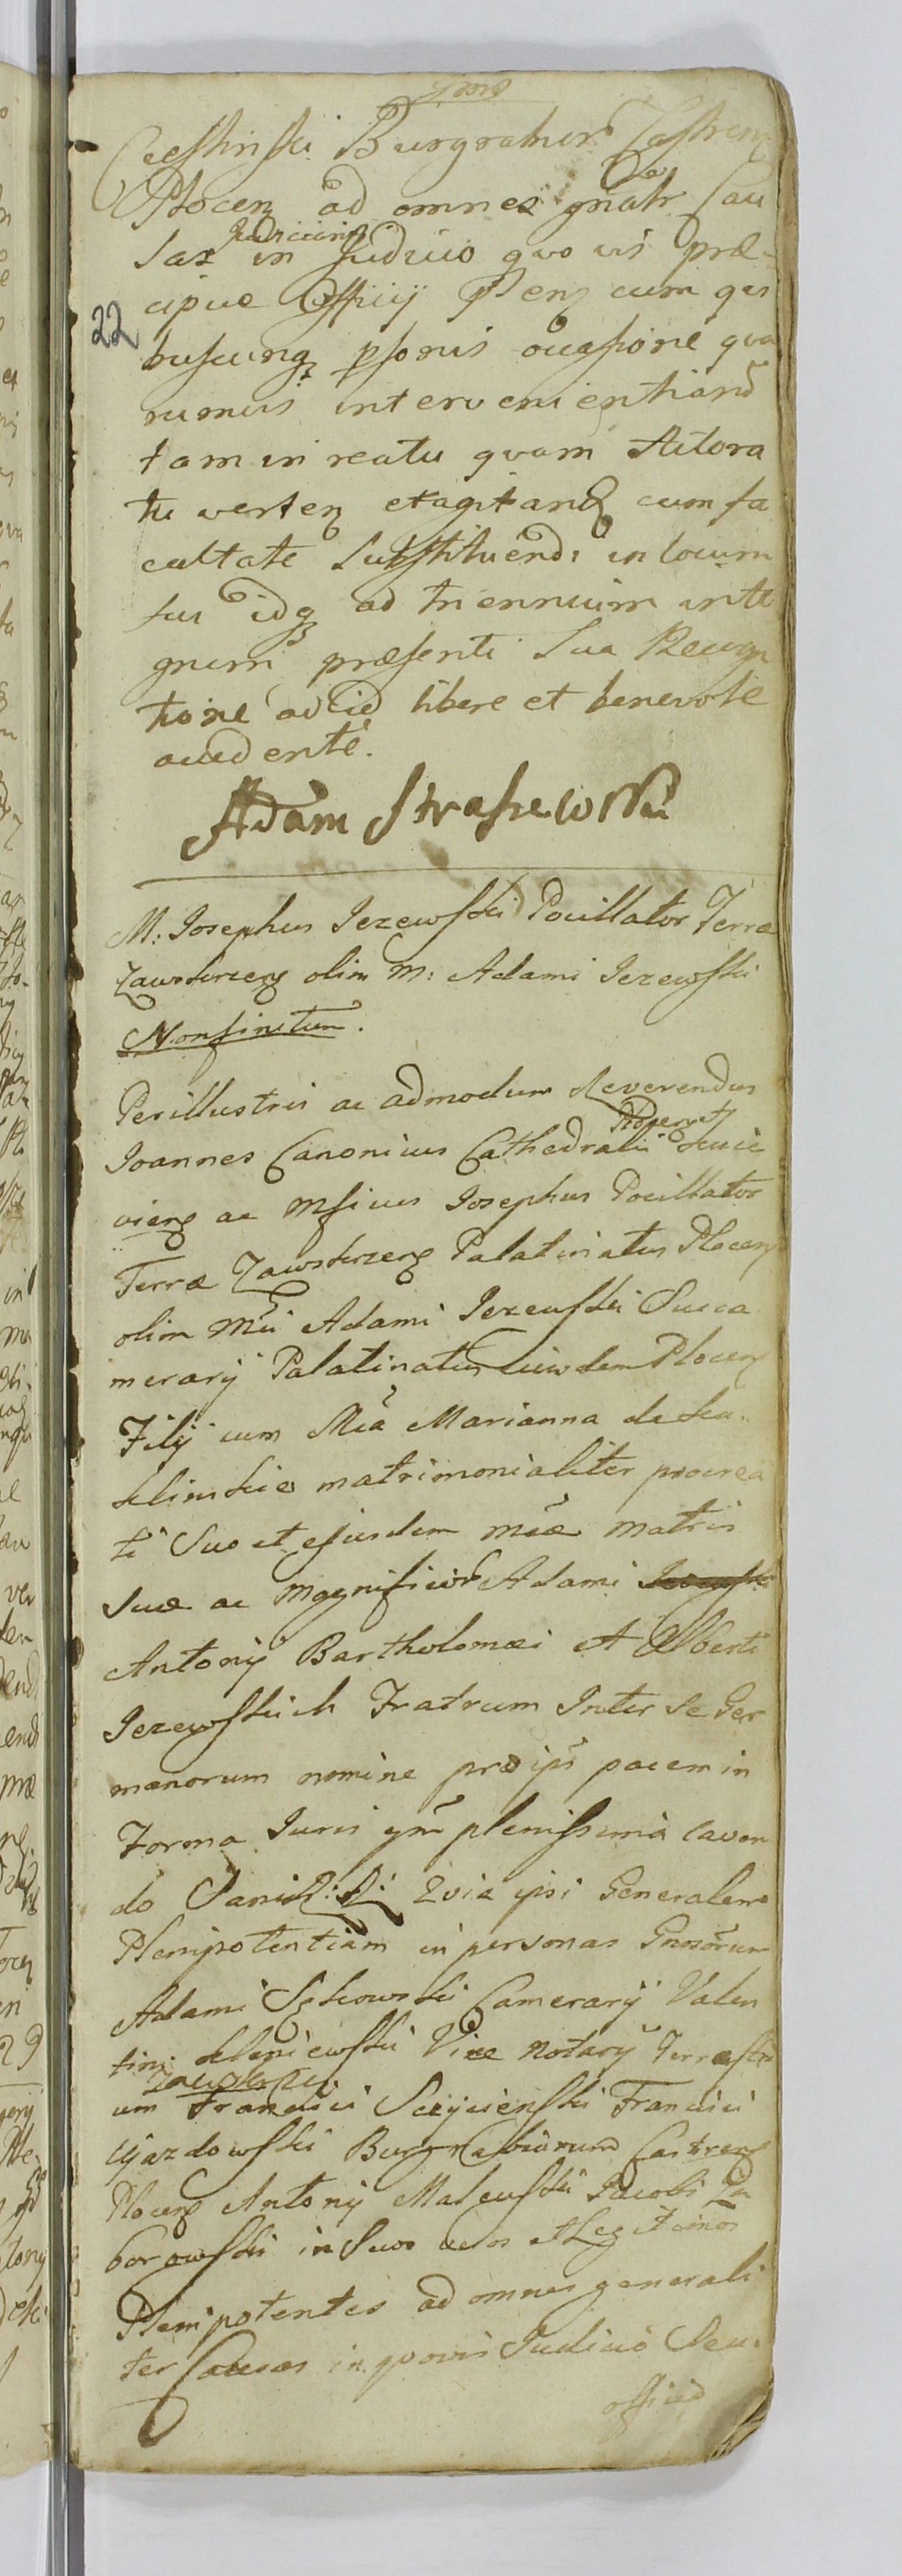 Burgrabior Castren
Plocen ad omnes gnalr Cau
Judiciarias
sas in Judicio quovis præ-
cipue Officij Plocen cum qui
22
buscunq psonis occasione qua
rumvis intervenientiarũ
tam in reatu quam Actora
tu verten et agitand cum fa
cultate Substituendi in locum
sui idq ad triennium inte
grum præsenti Sua Recogni
tione ad id libere et benevole
accedente.
Adam Straszewski
M: Josephus Jezewski Pocillator Terræ
Zawskrzen olim M: Adami Jezewski
Nonfinitum.
Perillustris ac admodum Reverendus
Plocen et
Joannes Canonicus Cathedralis
vien ac Mficus Josephus Pocillator
Terræ Zawskrzen Palatinatus Plocen
olim Mci Adami Jezewski Succa
merarij Palatinatus eiusdem Plocen
Filij cum Mca Marianna de
matrimonialiter procrea
ti Suo et ejusdem Mcæ Matris
Suæ ac Magnificor Adami
Antonij Bartholomæi et Alberti
Jezewskich Fratrum Inter se Ger
manorum nomine pro ips pacem in
Forma Juris gnr plenissima caven
do Quia ipsi Generalem
Plenipotentiam in personas Gnosorum
Adami Camerarij Valen
tini Vice Notarij Terrestri
Zawskrzen
um Francisci Francisci
Ujazdowski Burgrabiorum Castren
Plocen Antonij Malewski Jacobi Da
borowski in Suos veros et Legitimos
Plenipotentes ad omnes generali
ter Causas in quovis Judicio Seu
officio